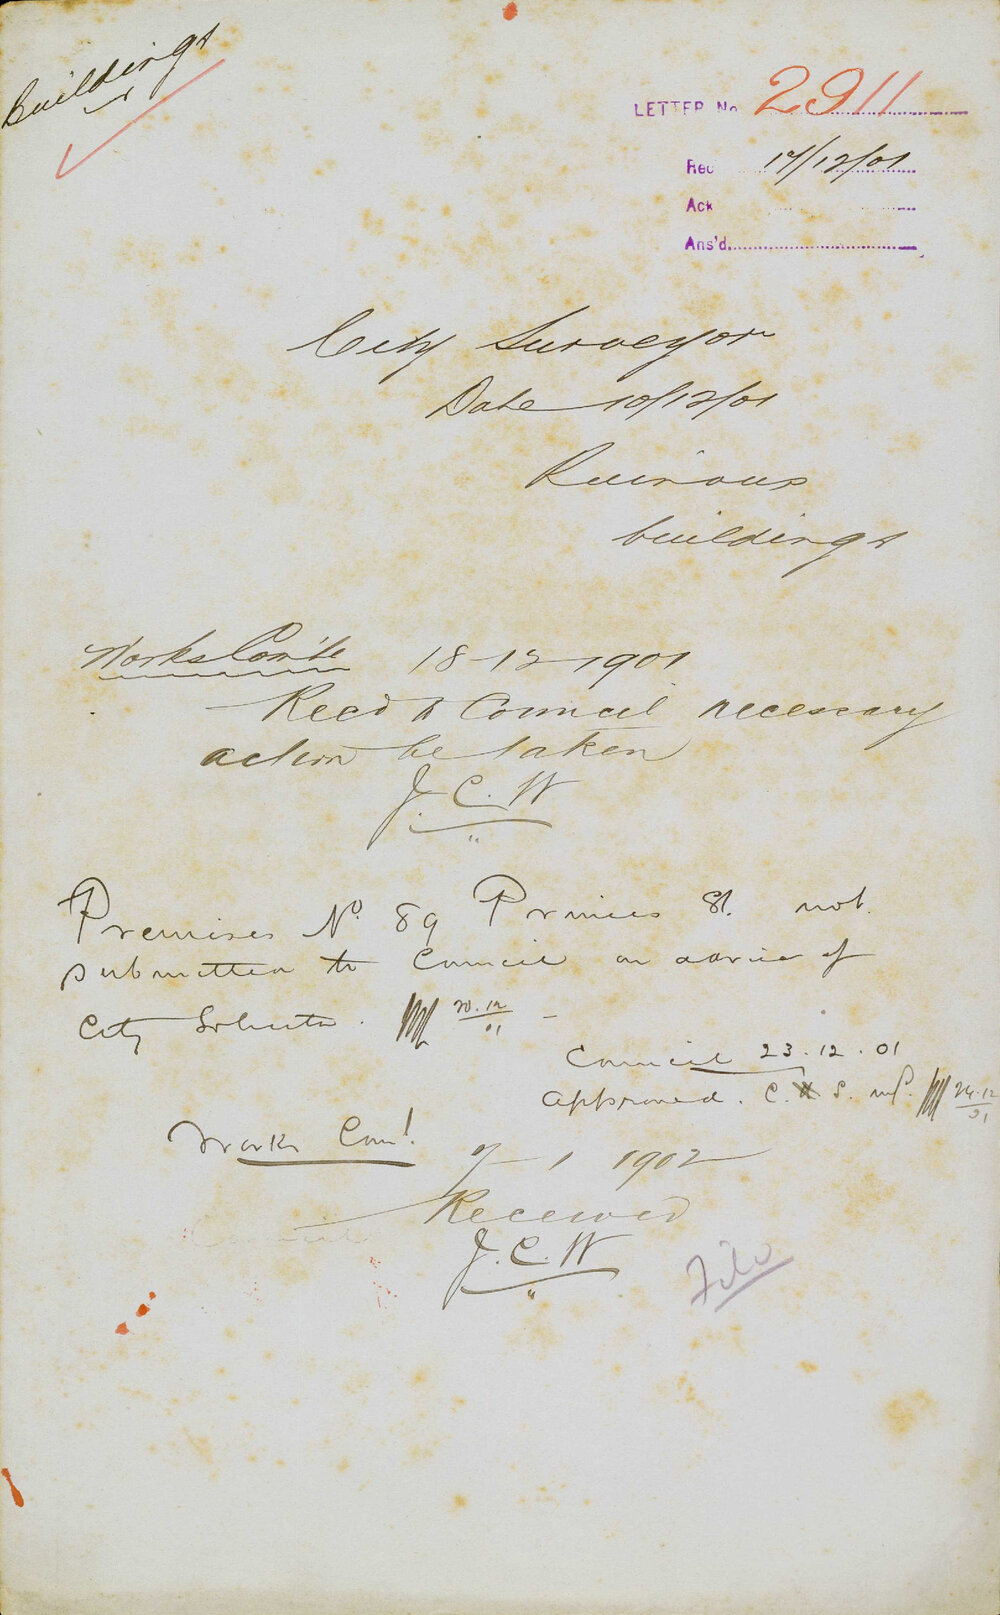 Buildings
LETTER No 2911
Rec 17/12/01
Ack
Ans'd
City Surveyor
Date 10/12/01
Ruinous
buildings
Works Com'tee 18-12-1901
Recd to Council necessary
action be taken
J.C.W
Premises No. 89 Princes St. not
submitted to Council on advice of
City Solicitor. 20.12/01 -
Council 23.12.01
Approved. C. S. 24.12/01
Works Com!
7-1 1902
Received
Council
J.C.W
File